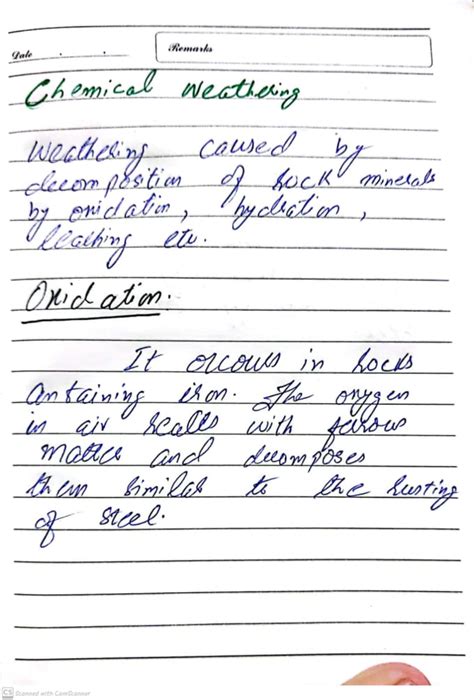 Date . .
Remarks
Chemical Weathering
Weathering caused by
decomposition of rock minerals
by oxidation, hydration,
leaching etc.
Oxidation.
It occurs in rocks
containing iron. The oxygen
in air reacts with ferrous
matter and decomposes
them similar to the rusting
of steel.
CS Scanned with CamScanner